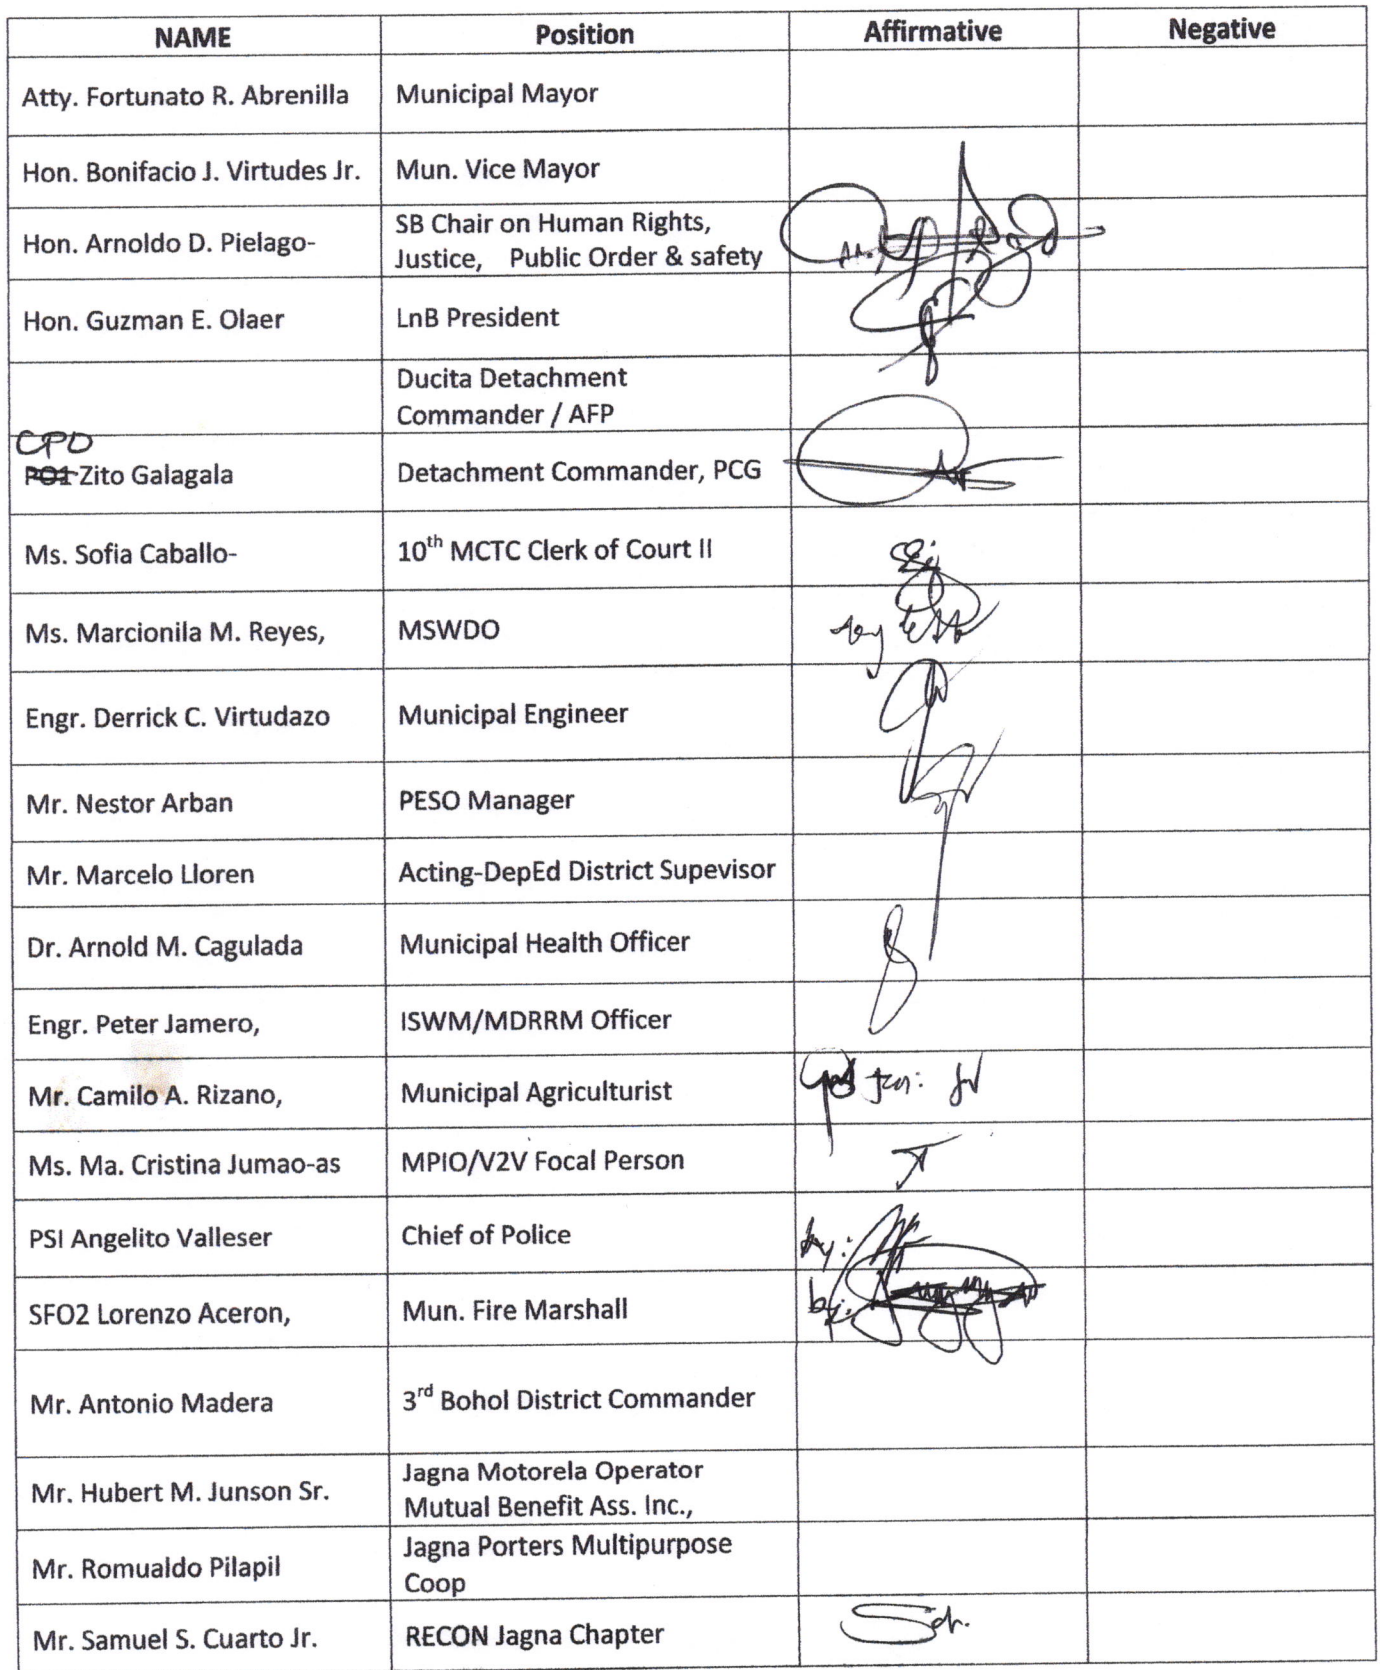 NAME Position Affirmative Negative
Atty. Fortunato R. Abrenilla Municipal Mayor
Hon. Bonifacio J. Virtudes Jr. Mun. Vice Mayor
Hon. Arnoldo D. Pielago- SB Chair on Human Rights,
Justice, Public Order & safety
Hon. Guzman E. Olaer LnB President
Ducita Detachment
Commander / AFP
CPO
PO1 Zito Galagala Detachment Commander, PCG
Ms. Sofia Caballo- 10th MCTC Clerk of Court II
Ms. Marcionila M. Reyes, MSWDO
Engr. Derrick C. Virtudazo Municipal Engineer
Mr. Nestor Arban PESO Manager
Mr. Marcelo Lloren Acting-DepEd District Supevisor
Dr. Arnold M. Cagulada Municipal Health Officer
Engr. Peter Jamero, ISWM/MDRRM Officer
Mr. Camilo A. Rizano, Municipal Agriculturist
Ms. Ma. Cristina Jumao-as MPIO/V2V Focal Person
PSI Angelito Valleser Chief of Police by:
SFO2 Lorenzo Aceron, Mun. Fire Marshall by:
Mr. Antonio Madera 3rd Bohol District Commander
Mr. Hubert M. Junson Sr. Jagna Motorela Operator
Mutual Benefit Ass. Inc.,
Mr. Romualdo Pilapil Jagna Porters Multipurpose
Coop
Mr. Samuel S. Cuarto Jr. RECON Jagna Chapter